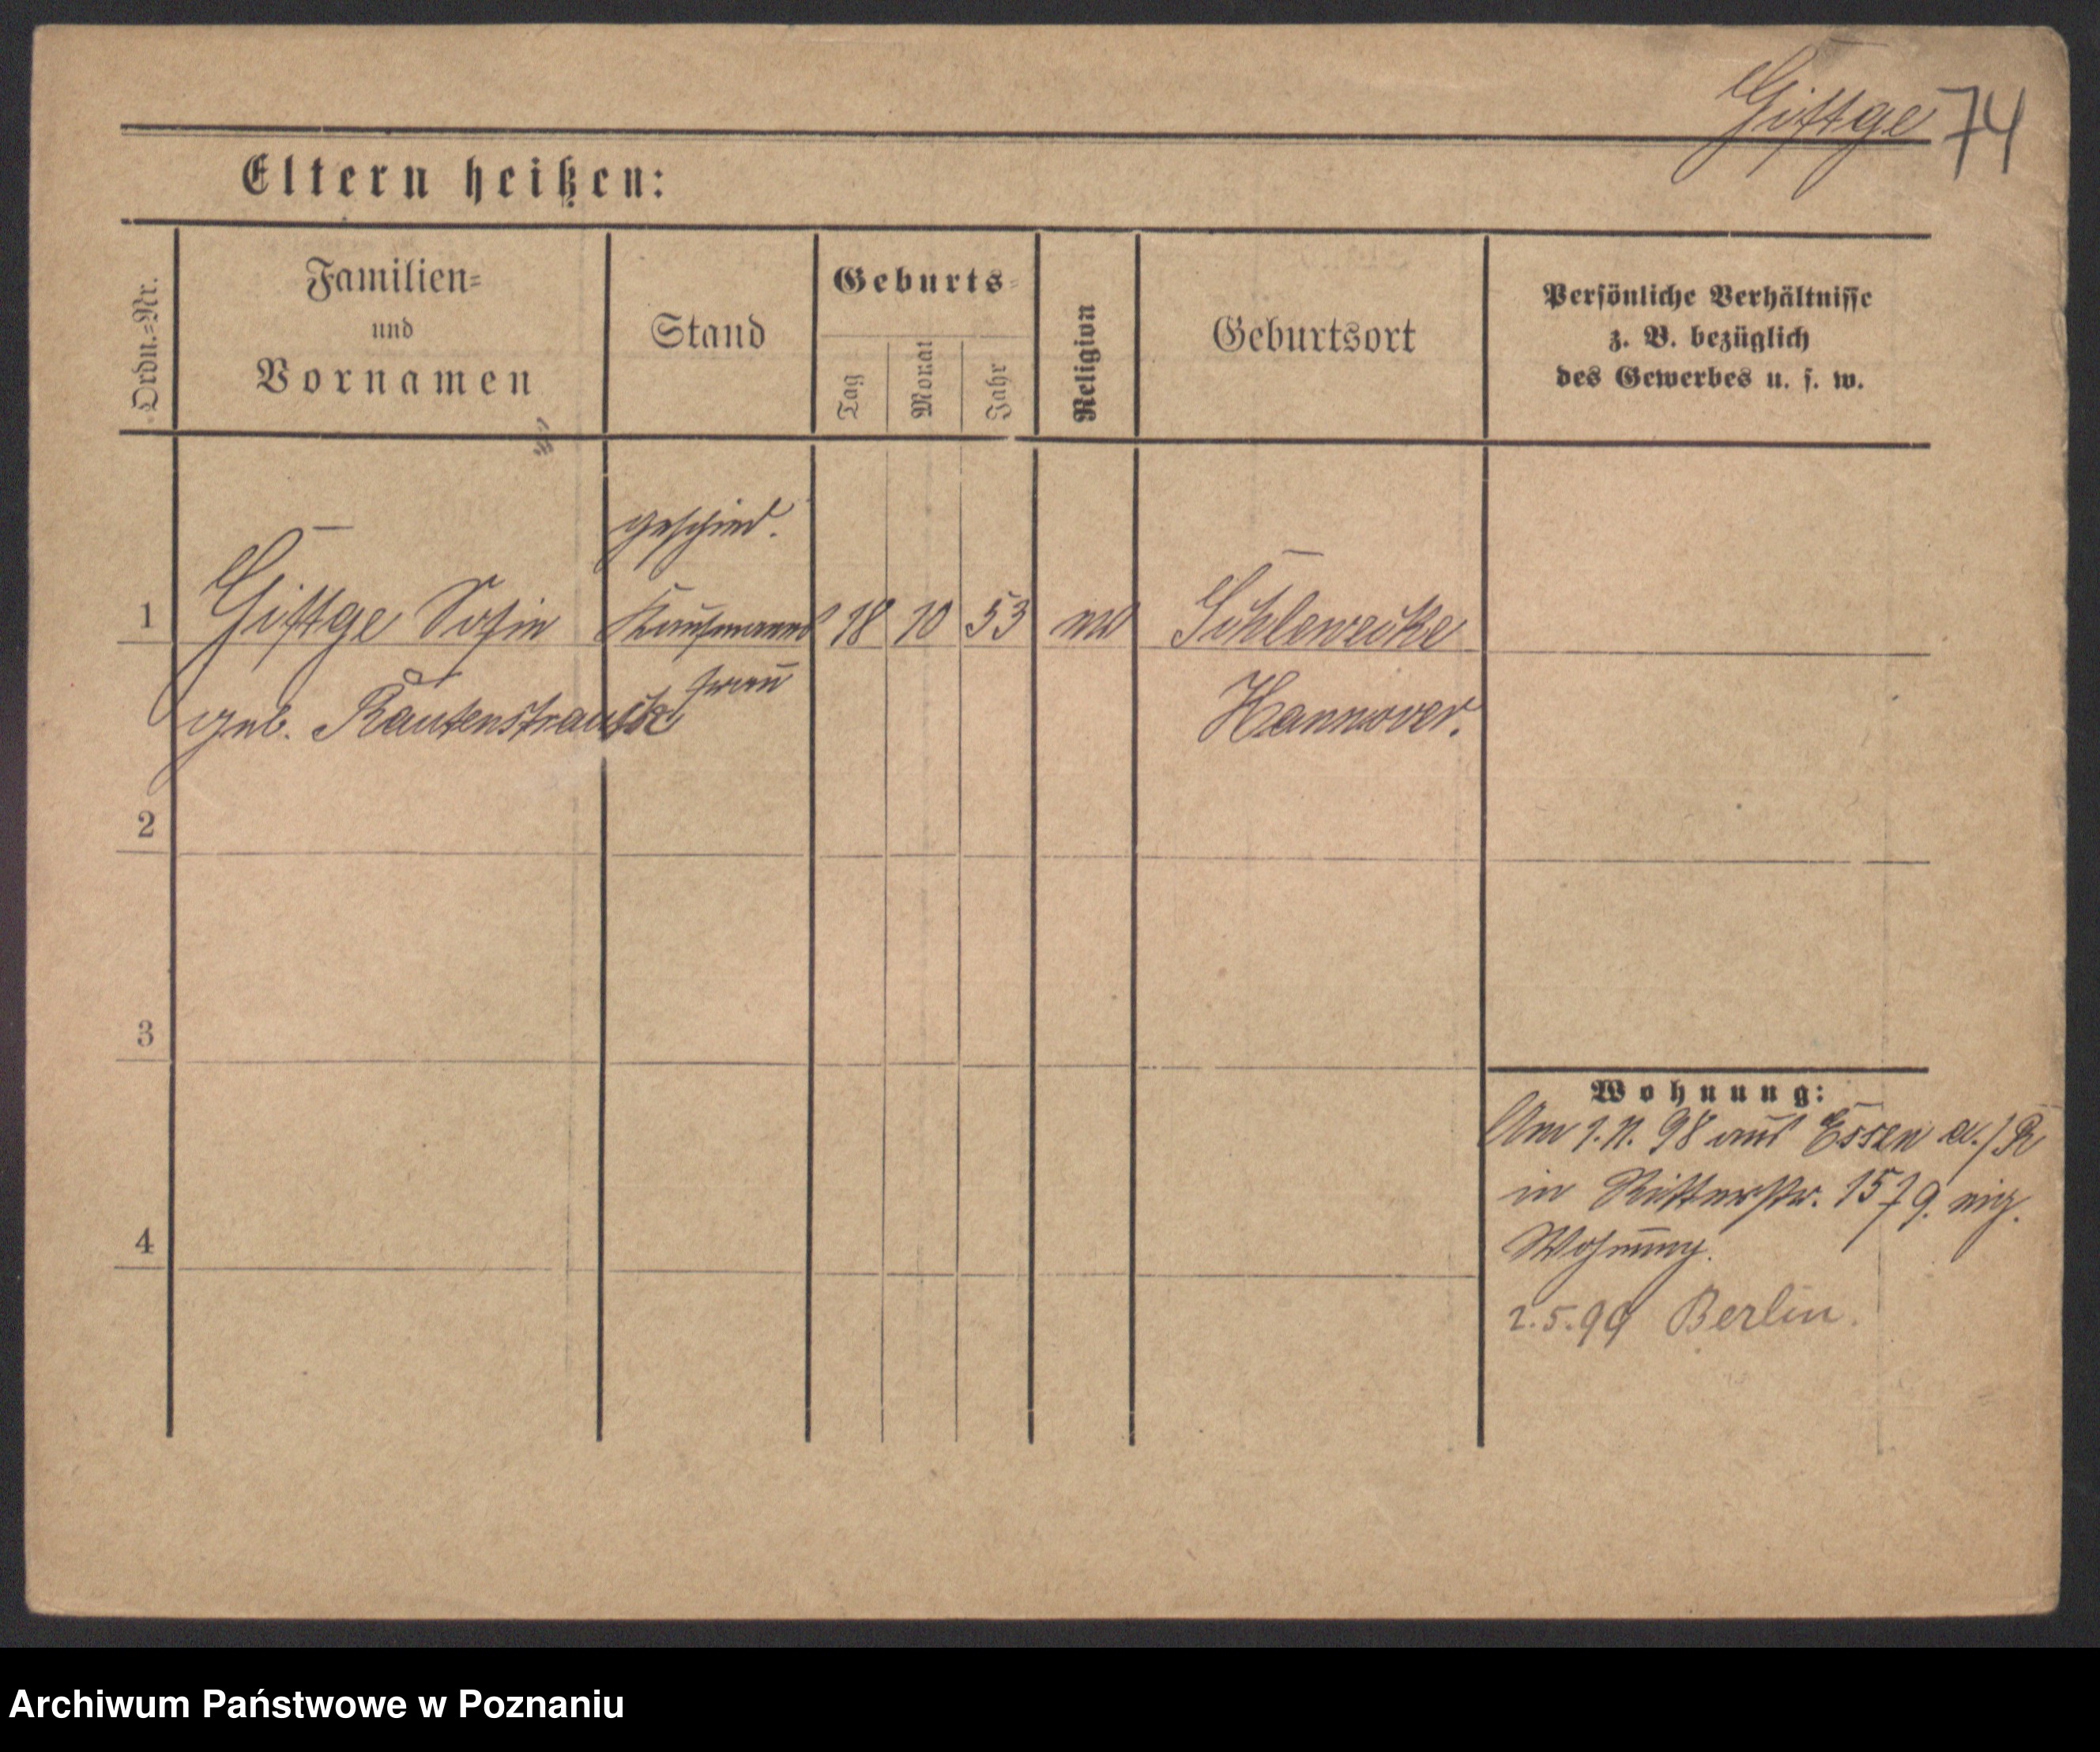 Giftge 74
Eltern heißen:
Ordn.=Nr.
Familien=
und
Vornamen
Stand
Geburts=
Tag
Monat
Jahr
Religion
Geburtsort
Persönliche Verhältnisse
z. B. bezüglich
des Gewerbes u. s. w.
geschied.
1 Giftge Sofie Kaufmanns 18 10 53 ev
frau
geb. Rautenstrauch Hannover.
2
3
4
Wohnung:
Am 1.11.98 aus Essen a./R
in Ritterstr. 15 eig.
Wohnung.
2.5.99 Berlin.
Archiwum Państwowe w Poznaniu